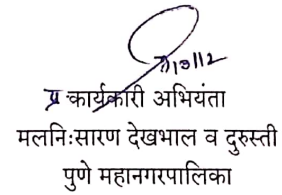 प्र कार्यकारी अभियंता
मलनि:सारण देखभाल व दुरुस्ती
पुणे महानगरपालिका